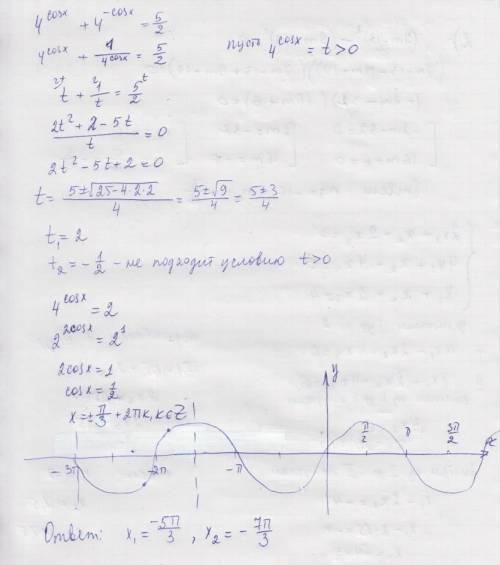 4^cosx + 4^-cosx = 5/2
4^cosx + 1/4^cosx = 5/2 пусть 4^cosx = t > 0
2t 2 t
t + 1/t = 5/2
(2t² + 2 - 5t)/t = 0
2t² - 5t + 2 = 0
t = (5 ± √(25 - 4·2·2))/4 = (5 ± √9)/4 = (5 ± 3)/4
t₁ = 2
t₂ = -1/2 - не подходит условию t > 0
4^cosx = 2
2^2cosx = 2^1
2cosx = 1
cosx = 1/2
x = ± π/3 + 2πk, k∈Z
y
π/2 π 3π/2 x
-3π -2π -π
Ответ: x₁ = -5π/3, x₂ = -7π/3